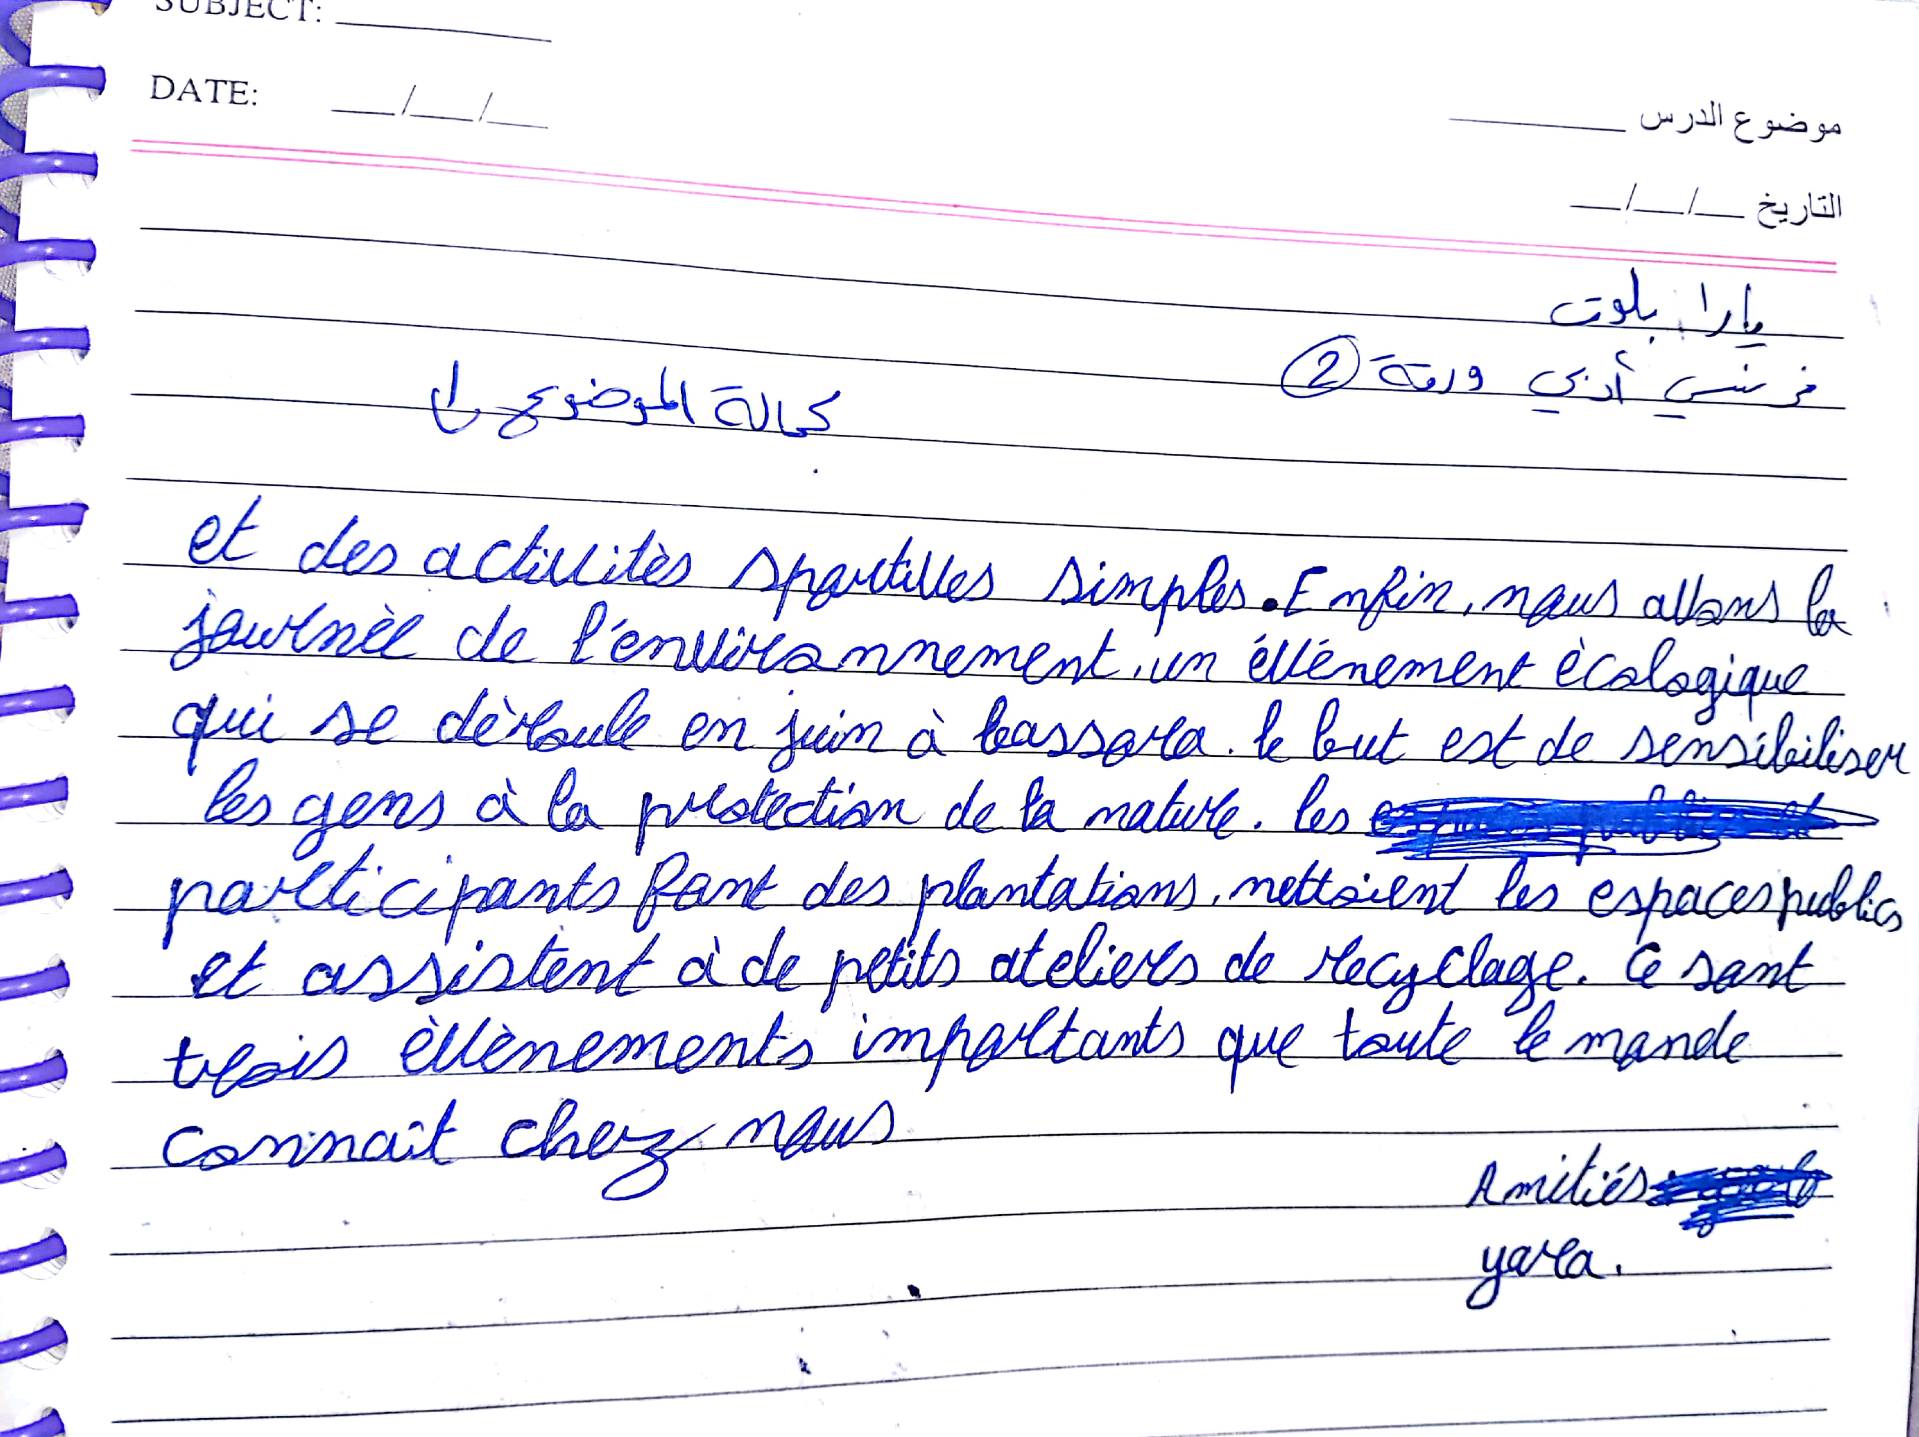 SUBJECT:
DATE: __/__/__
موضوع الدرس
التاريخ __/__/__
يارا بلوت
فرنسي أدبي ورقة 2
كمالة الموضوع
et des activitès sportives simples. Enfin, nous allons la
journèe de l'environnement, un événement ècologique
qui se dèroule en juin à bassora. le but est de sensibiliser
les gens à la protection de la nature. les
participants font des plantations, nettoient les espaces publics
et assistent à de petits ateliers de recyclage. Ce sont
trois èvènements importants que toute le monde
connait chez nous
Amitiés
yara.